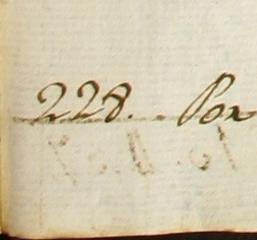 228. Por